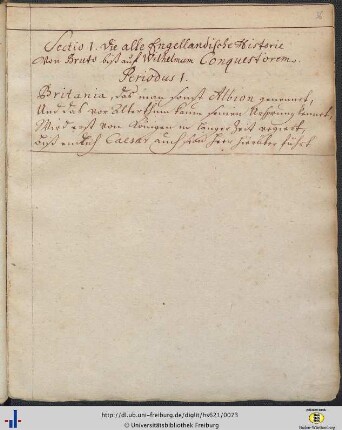 Sectio 1. Die alte Engelländische Historie
Von Bruto biß auf Wilhelmum Conquestorem.
Periodus 1.
Britania, das man sonst Albion genennet,
Und das vor Alterthum kaum seinen Ursprung kennet,
Wird erst von Königen in langer Zeit regiert,
Biß endlich Caesar auch sein Heer hierüber führt
http://dl.ub.uni-freiburg.de/diglit/hs621/0023
© Universitätsbibliothek Freiburg